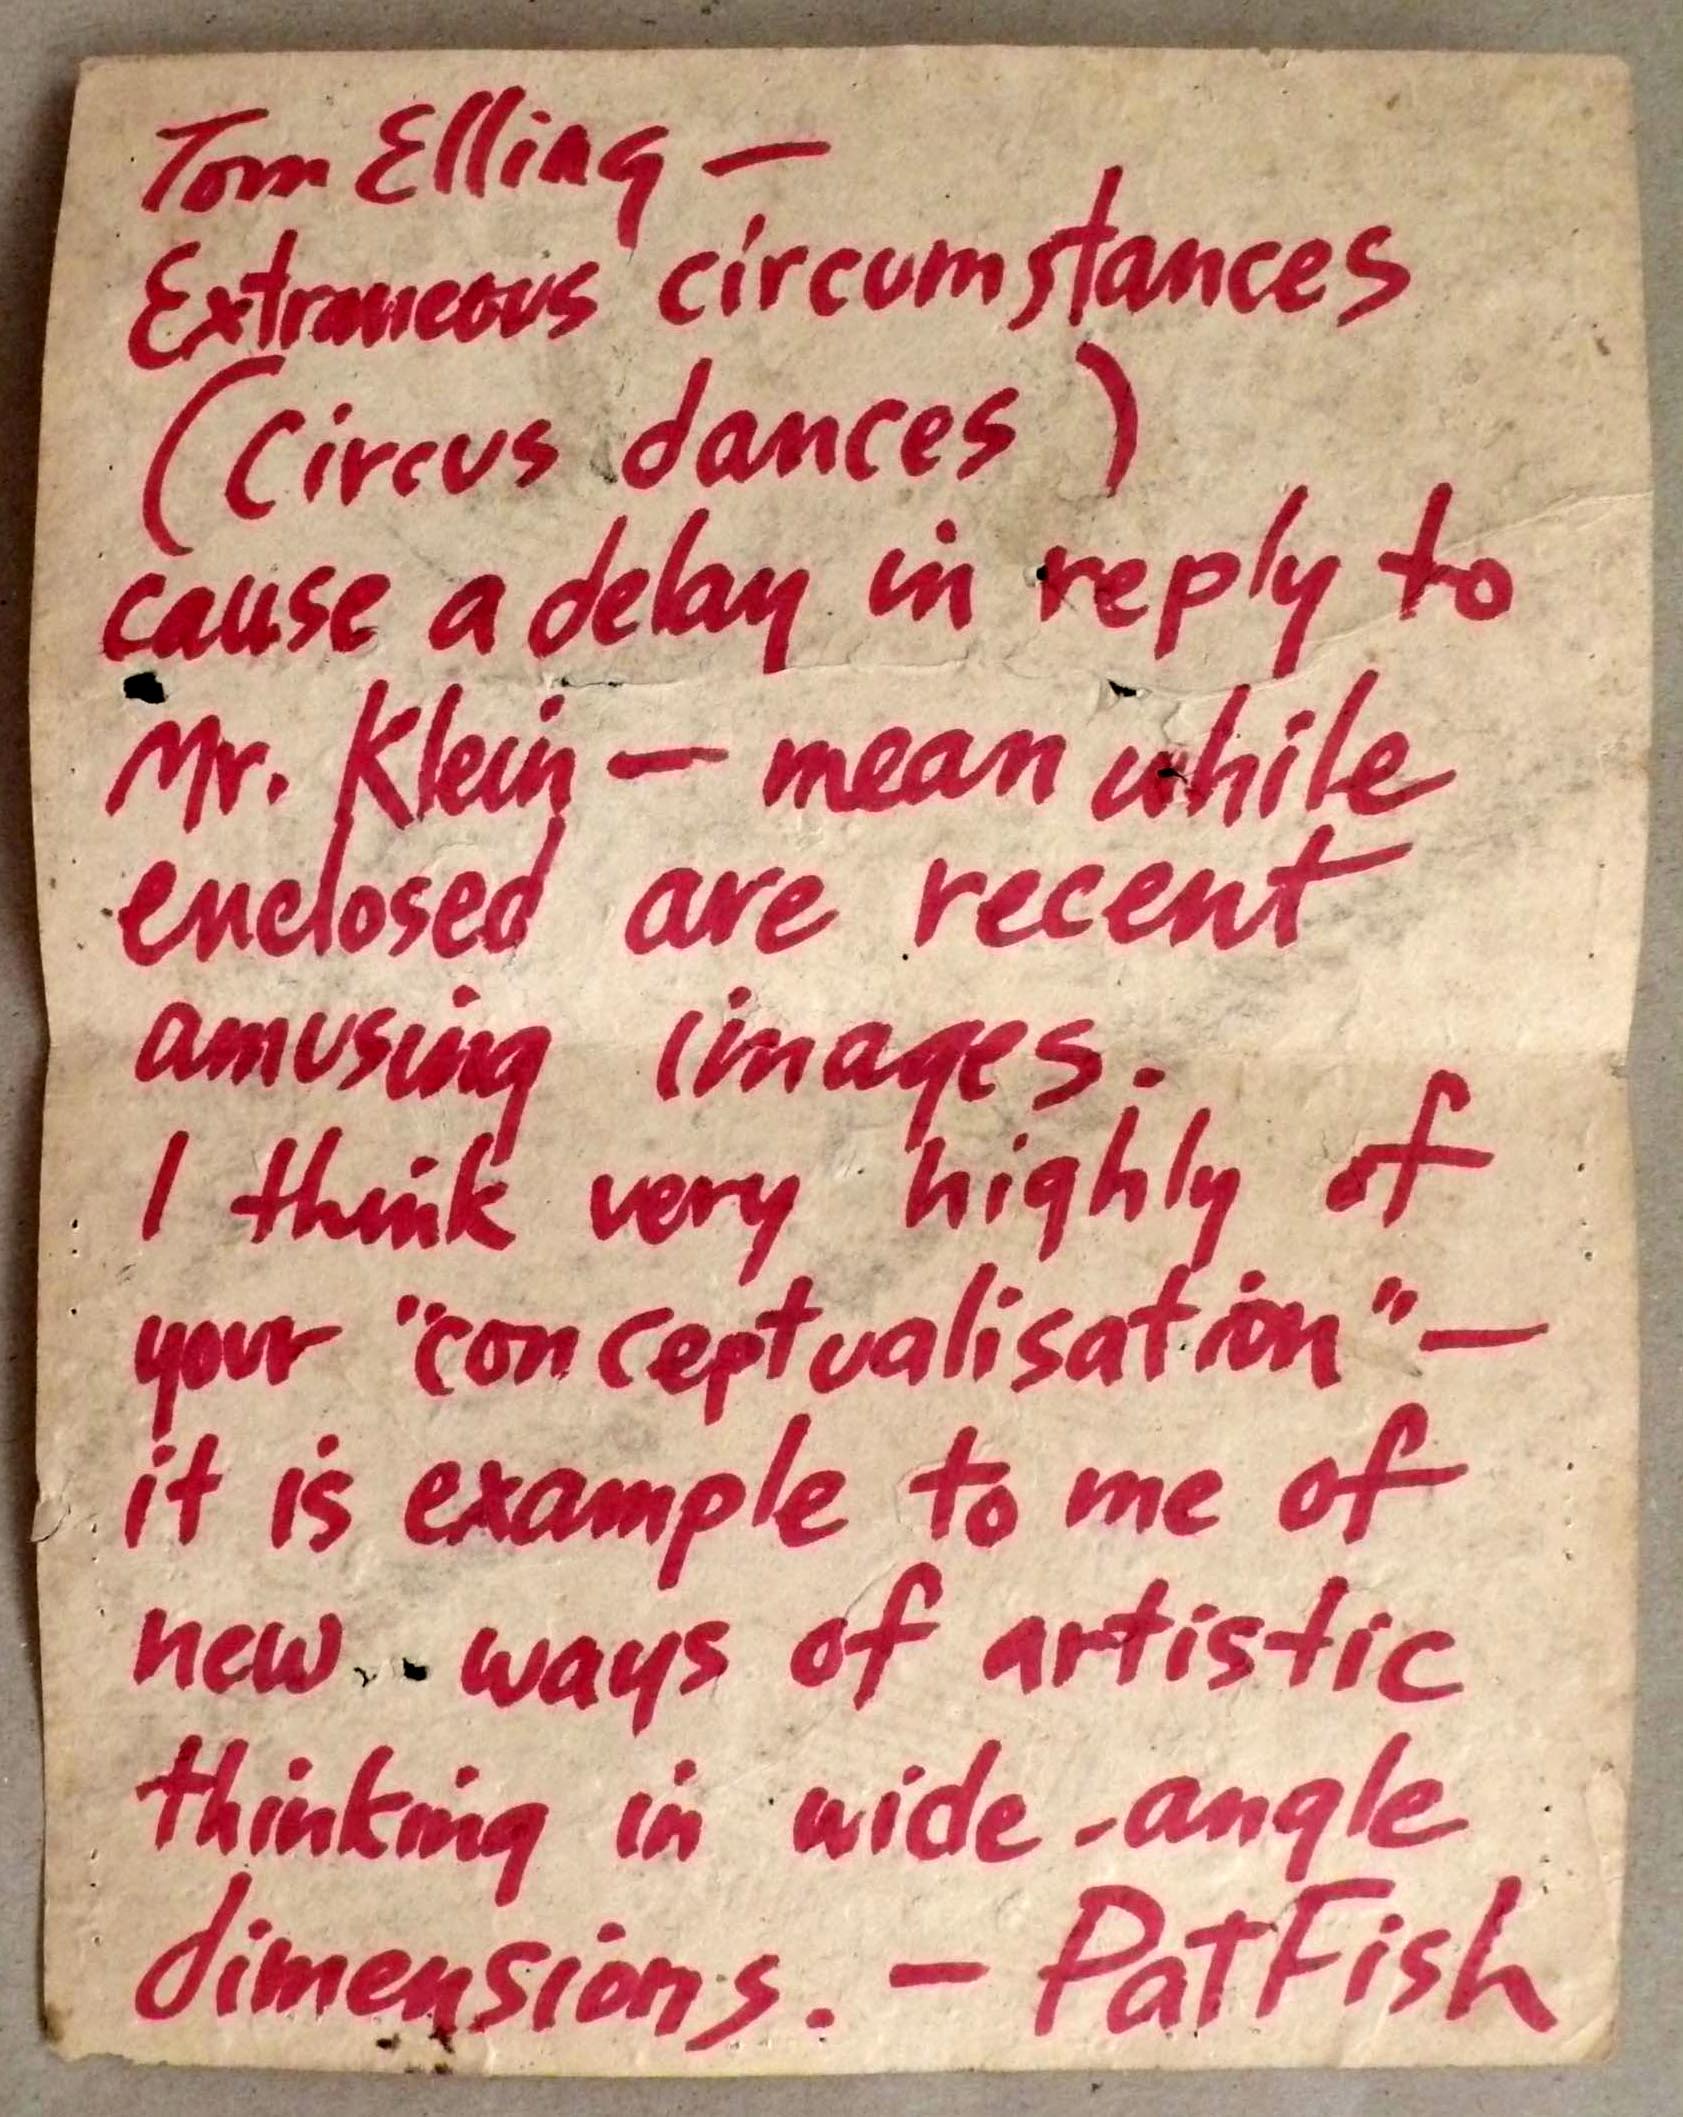 Tom Elling —
Extraneous circumstances
(Circus dances)
cause a delay in reply to
Mr. Klein — mean while
enclosed are recent
amusing images.
I think very highly of
your "conceptualisation" —
it is example to me of
new ways of artistic
thinking in wide-angle
dimensions. — PatFish